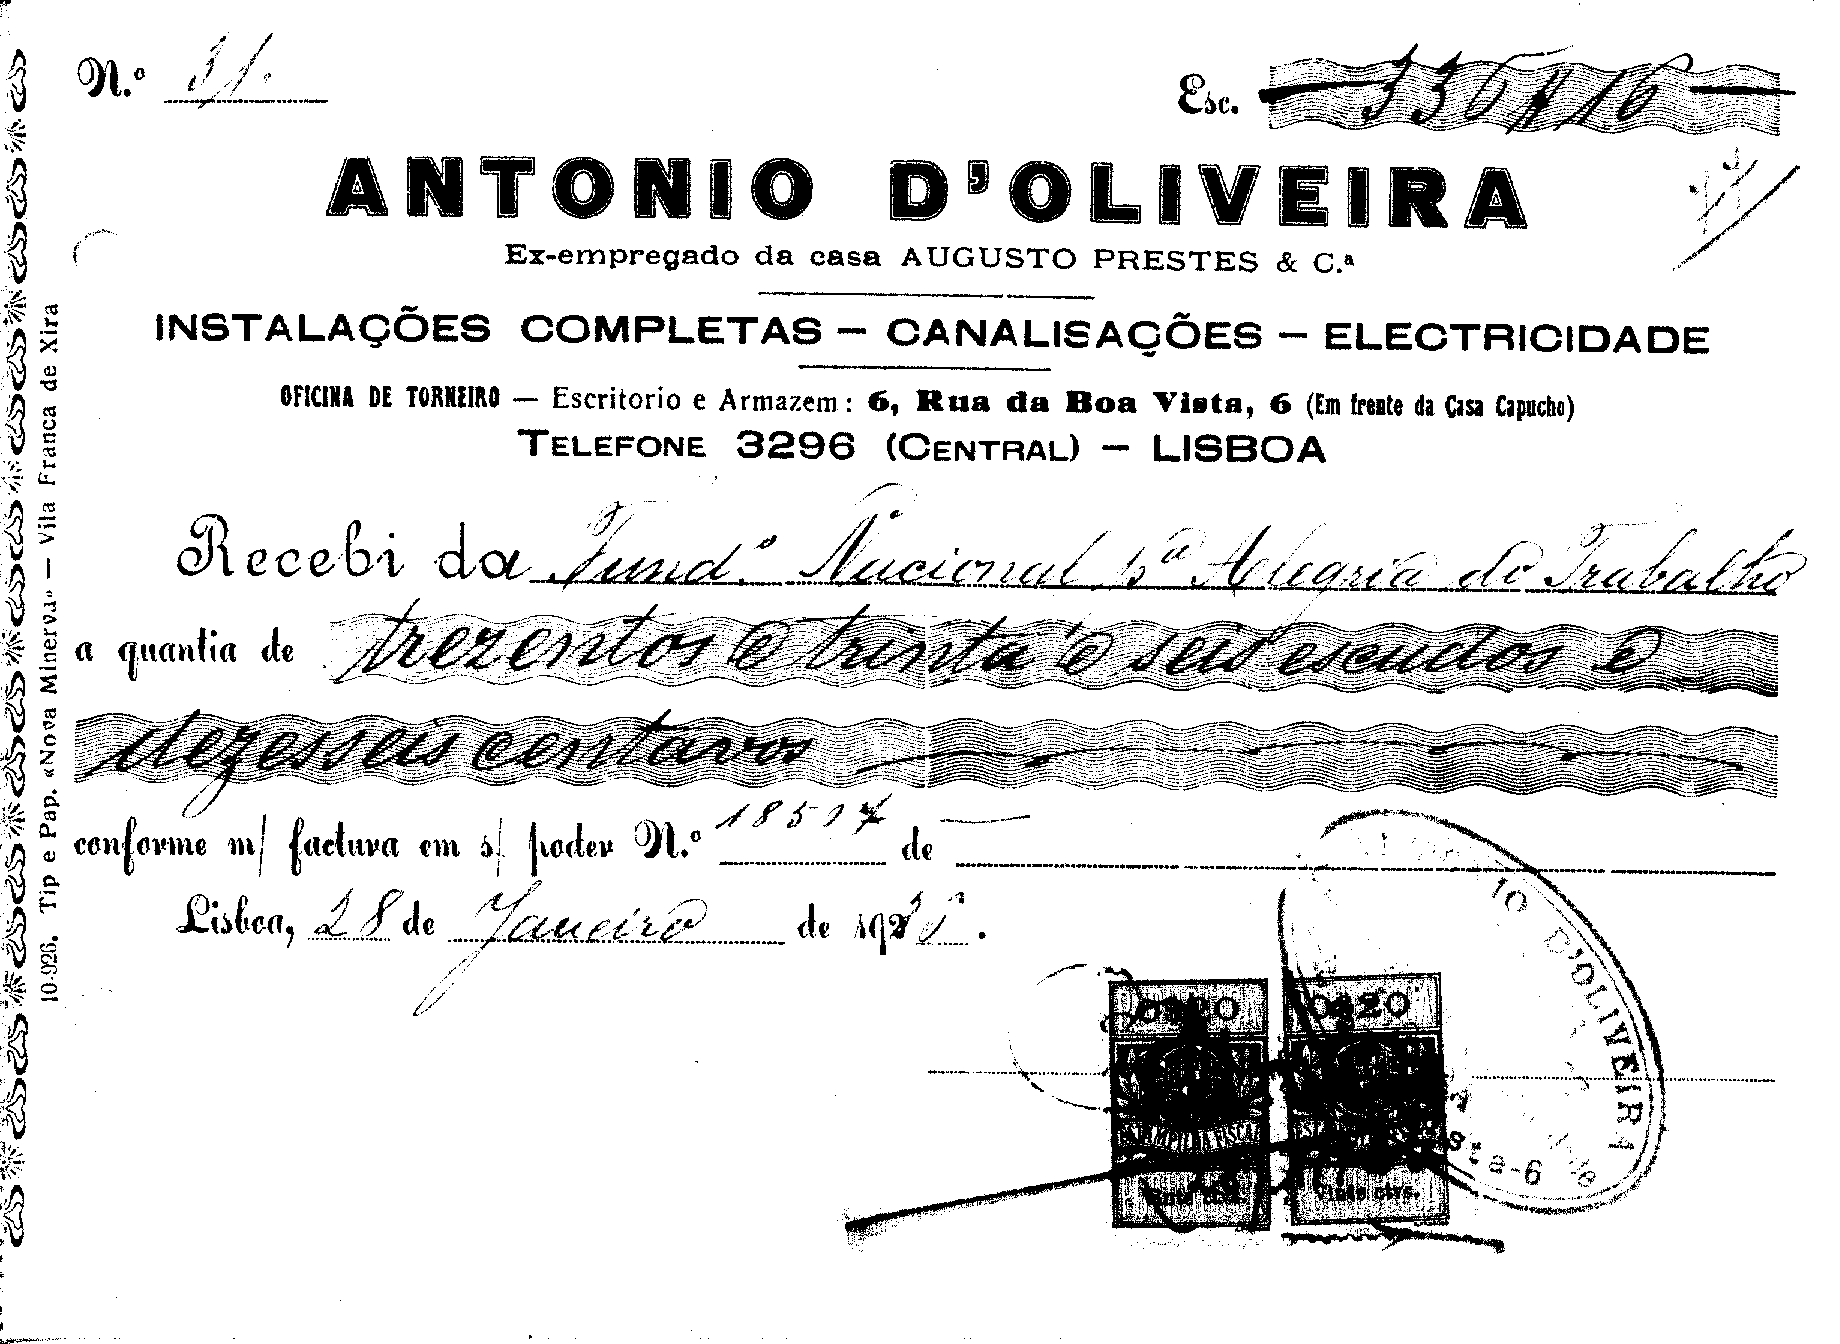 N.º 31.
Esc. 336$16
ANTONIO D'OLIVEIRA
Ex-empregado da casa AUGUSTO PRESTES & C.ª
INSTALAÇÕES COMPLETAS — CANALISAÇÕES — ELECTRICIDADE
OFICINA DE TORNEIRO — Escritorio e Armazem: 6, Rua da Boa Vista, 6 (Em frente da Casa Capucho)
TELEFONE 3296 (CENTRAL) — LISBOA
Recebi da Fund.º Nacional pª Alegria do Trabalho
a quantia de trezentos e trinta e seis escudos e
dezesseis centavos
conforme m/ factura em s/ poder N.º 18517 de —
Lisboa, 28 de Janeiro de 1936.
10-926. Tip e Pap. «Nova Minerva» — Vila Franca de Xira
0$20 0$20
ESTAMPILHA FISCAL
Vinte ctvs.
IO D'OLIVEIRA
sta-6